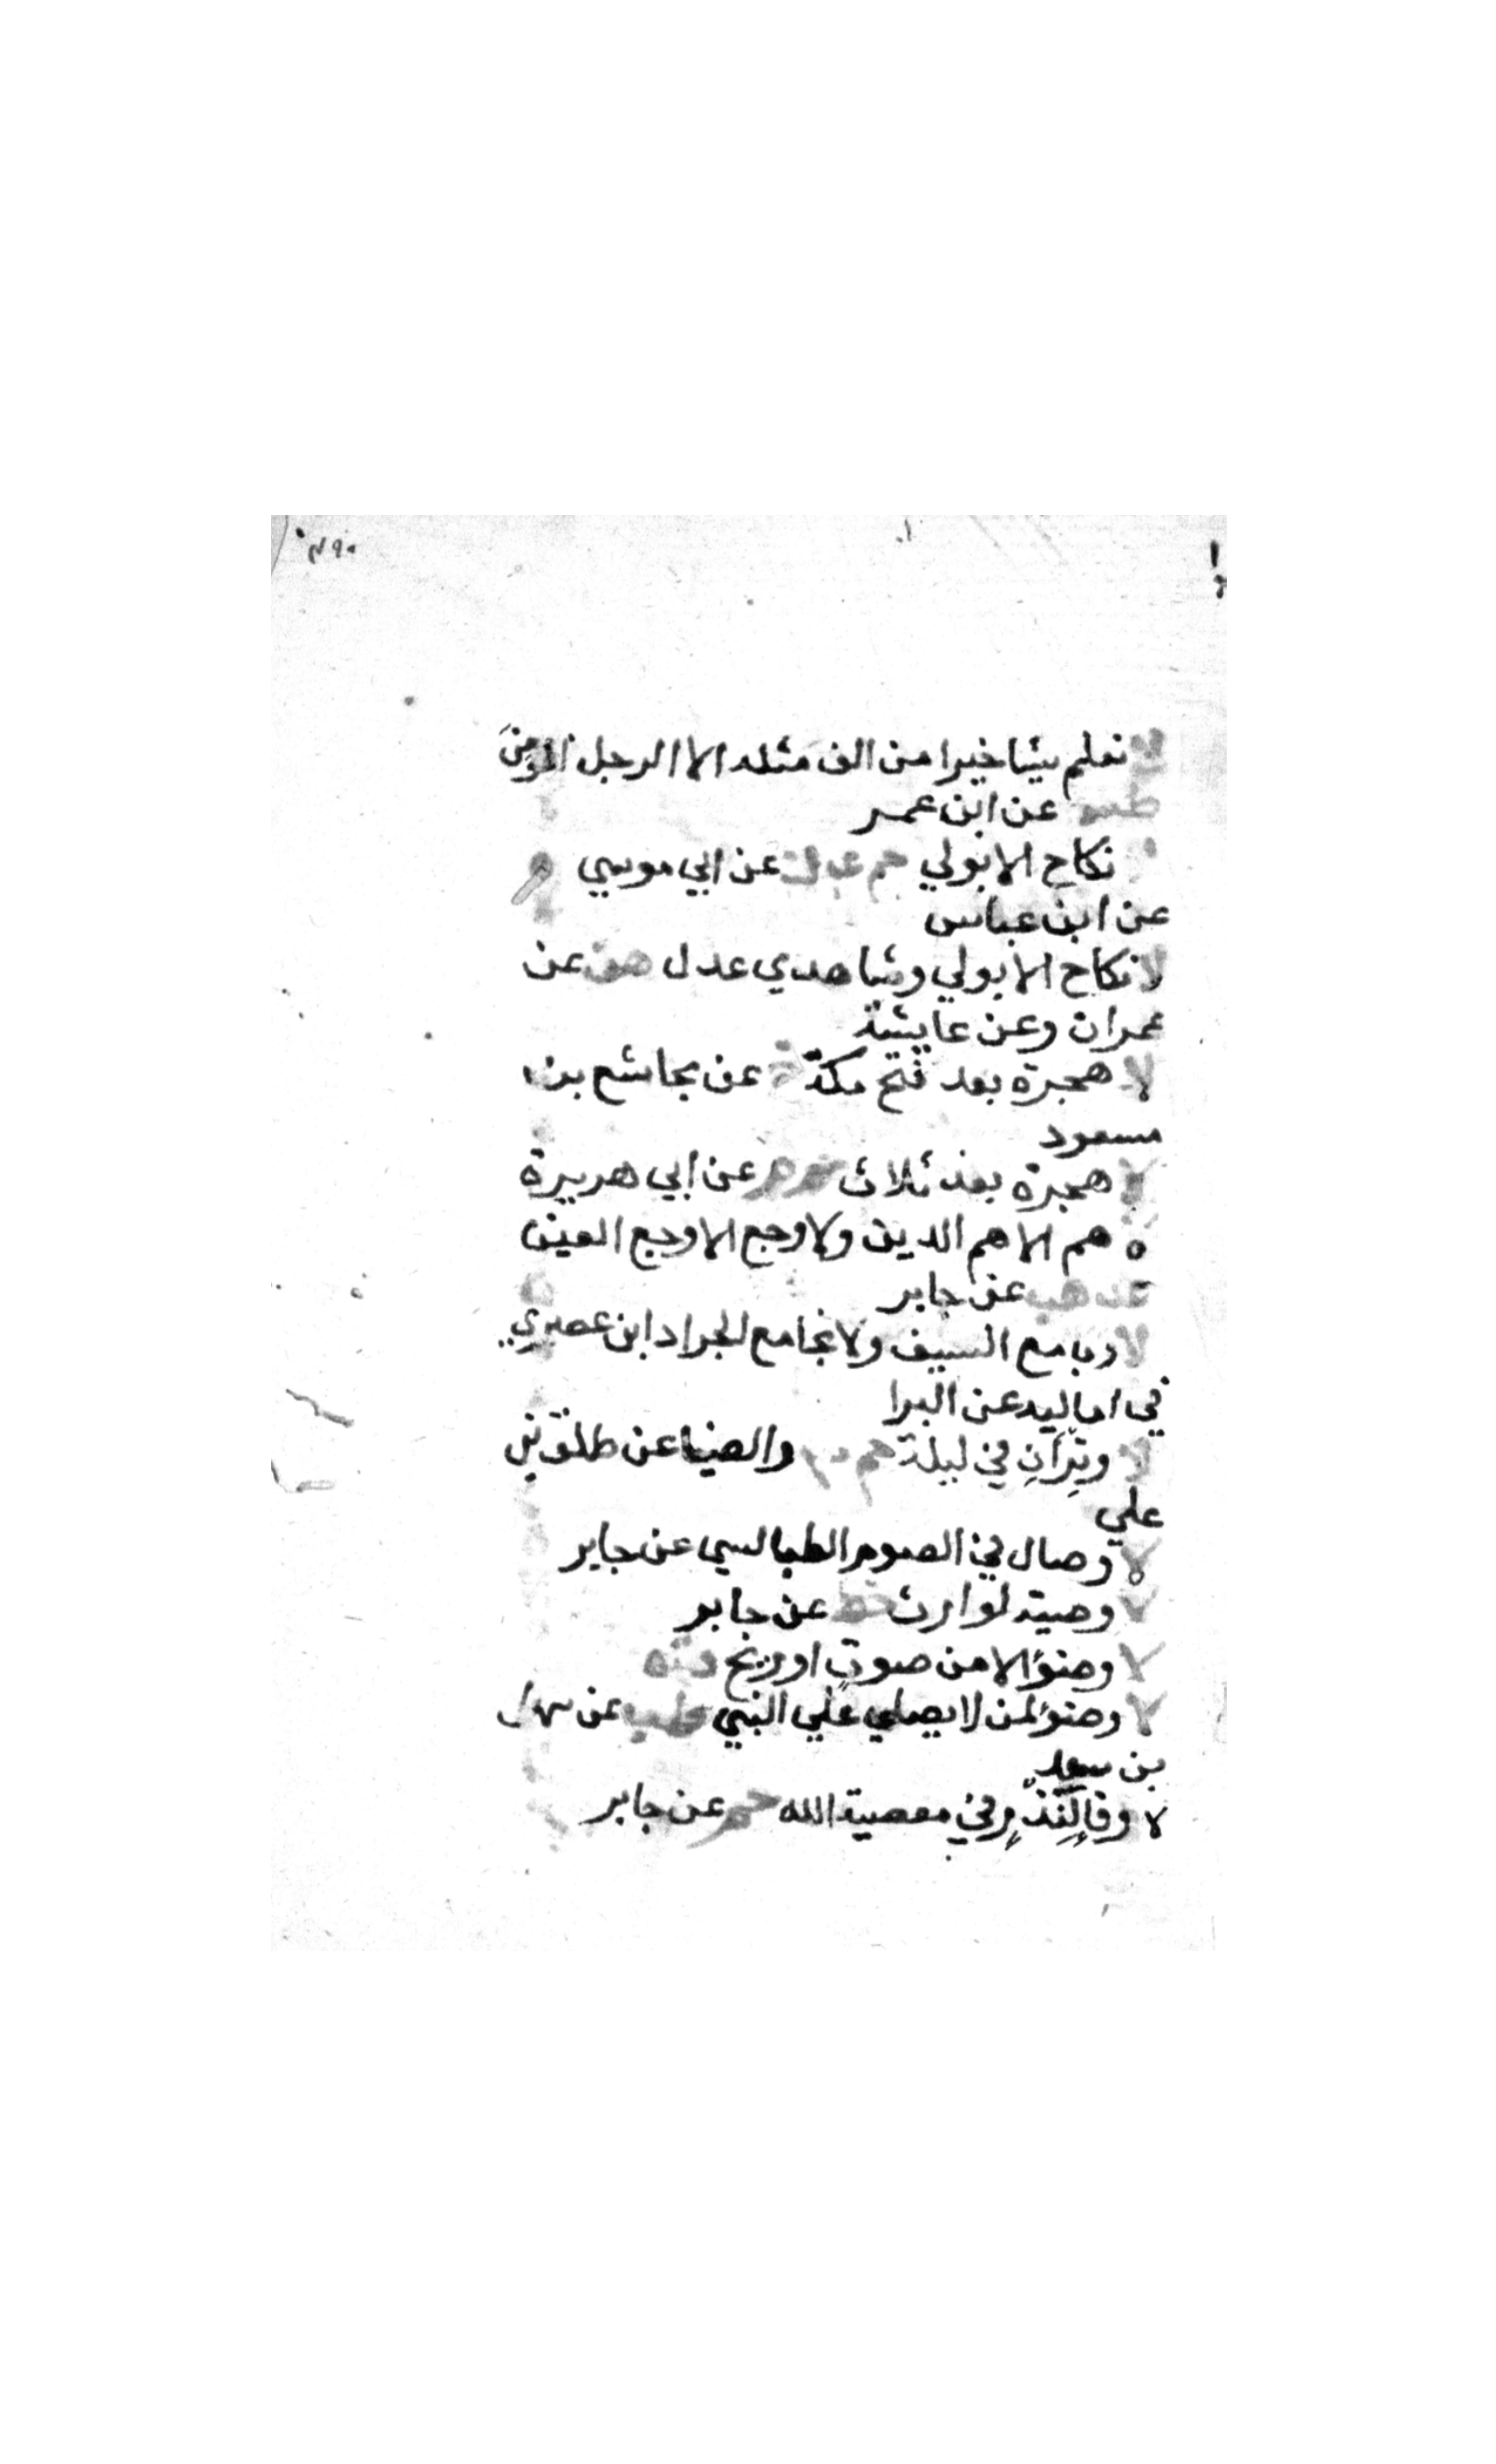 لا نعلم شيئا خيرا من الف مثله الا الرجل المؤمن
طب عن ابن عمر
نكاح الا بولي حم عن ابي موسي
عن ابن عباس
لا نكاح الا بولي وشاهدي عدل هق عن
عمران وعن عايشة
لا هجرة بعد فتح مكة عن مجاشع بن
مسعود
لا هجرة بعد ثلاث حم م عن ابي هريرة
هم الا هم الدين ولا وجع الا وجع العين
عد هب عن جابر
لا وبا مع السيف ولا نجا مع الجراد ابن عصري
في اماليه عن البرا
لا وِتِرَانِ في ليلة حم والضيا عن طلق بن
علي
لا وصال في الصوم الطيالسي عن جابر
لا وصية لوارث خط عن جابر
لا وضؤَ الا من صوتٍ او ريح
لا وضؤَ لمن لا يصلي علي النبي طب عن سهل
بن سعد
لا وفا لِنَذْرٍ في معصية الله حم عن جابر